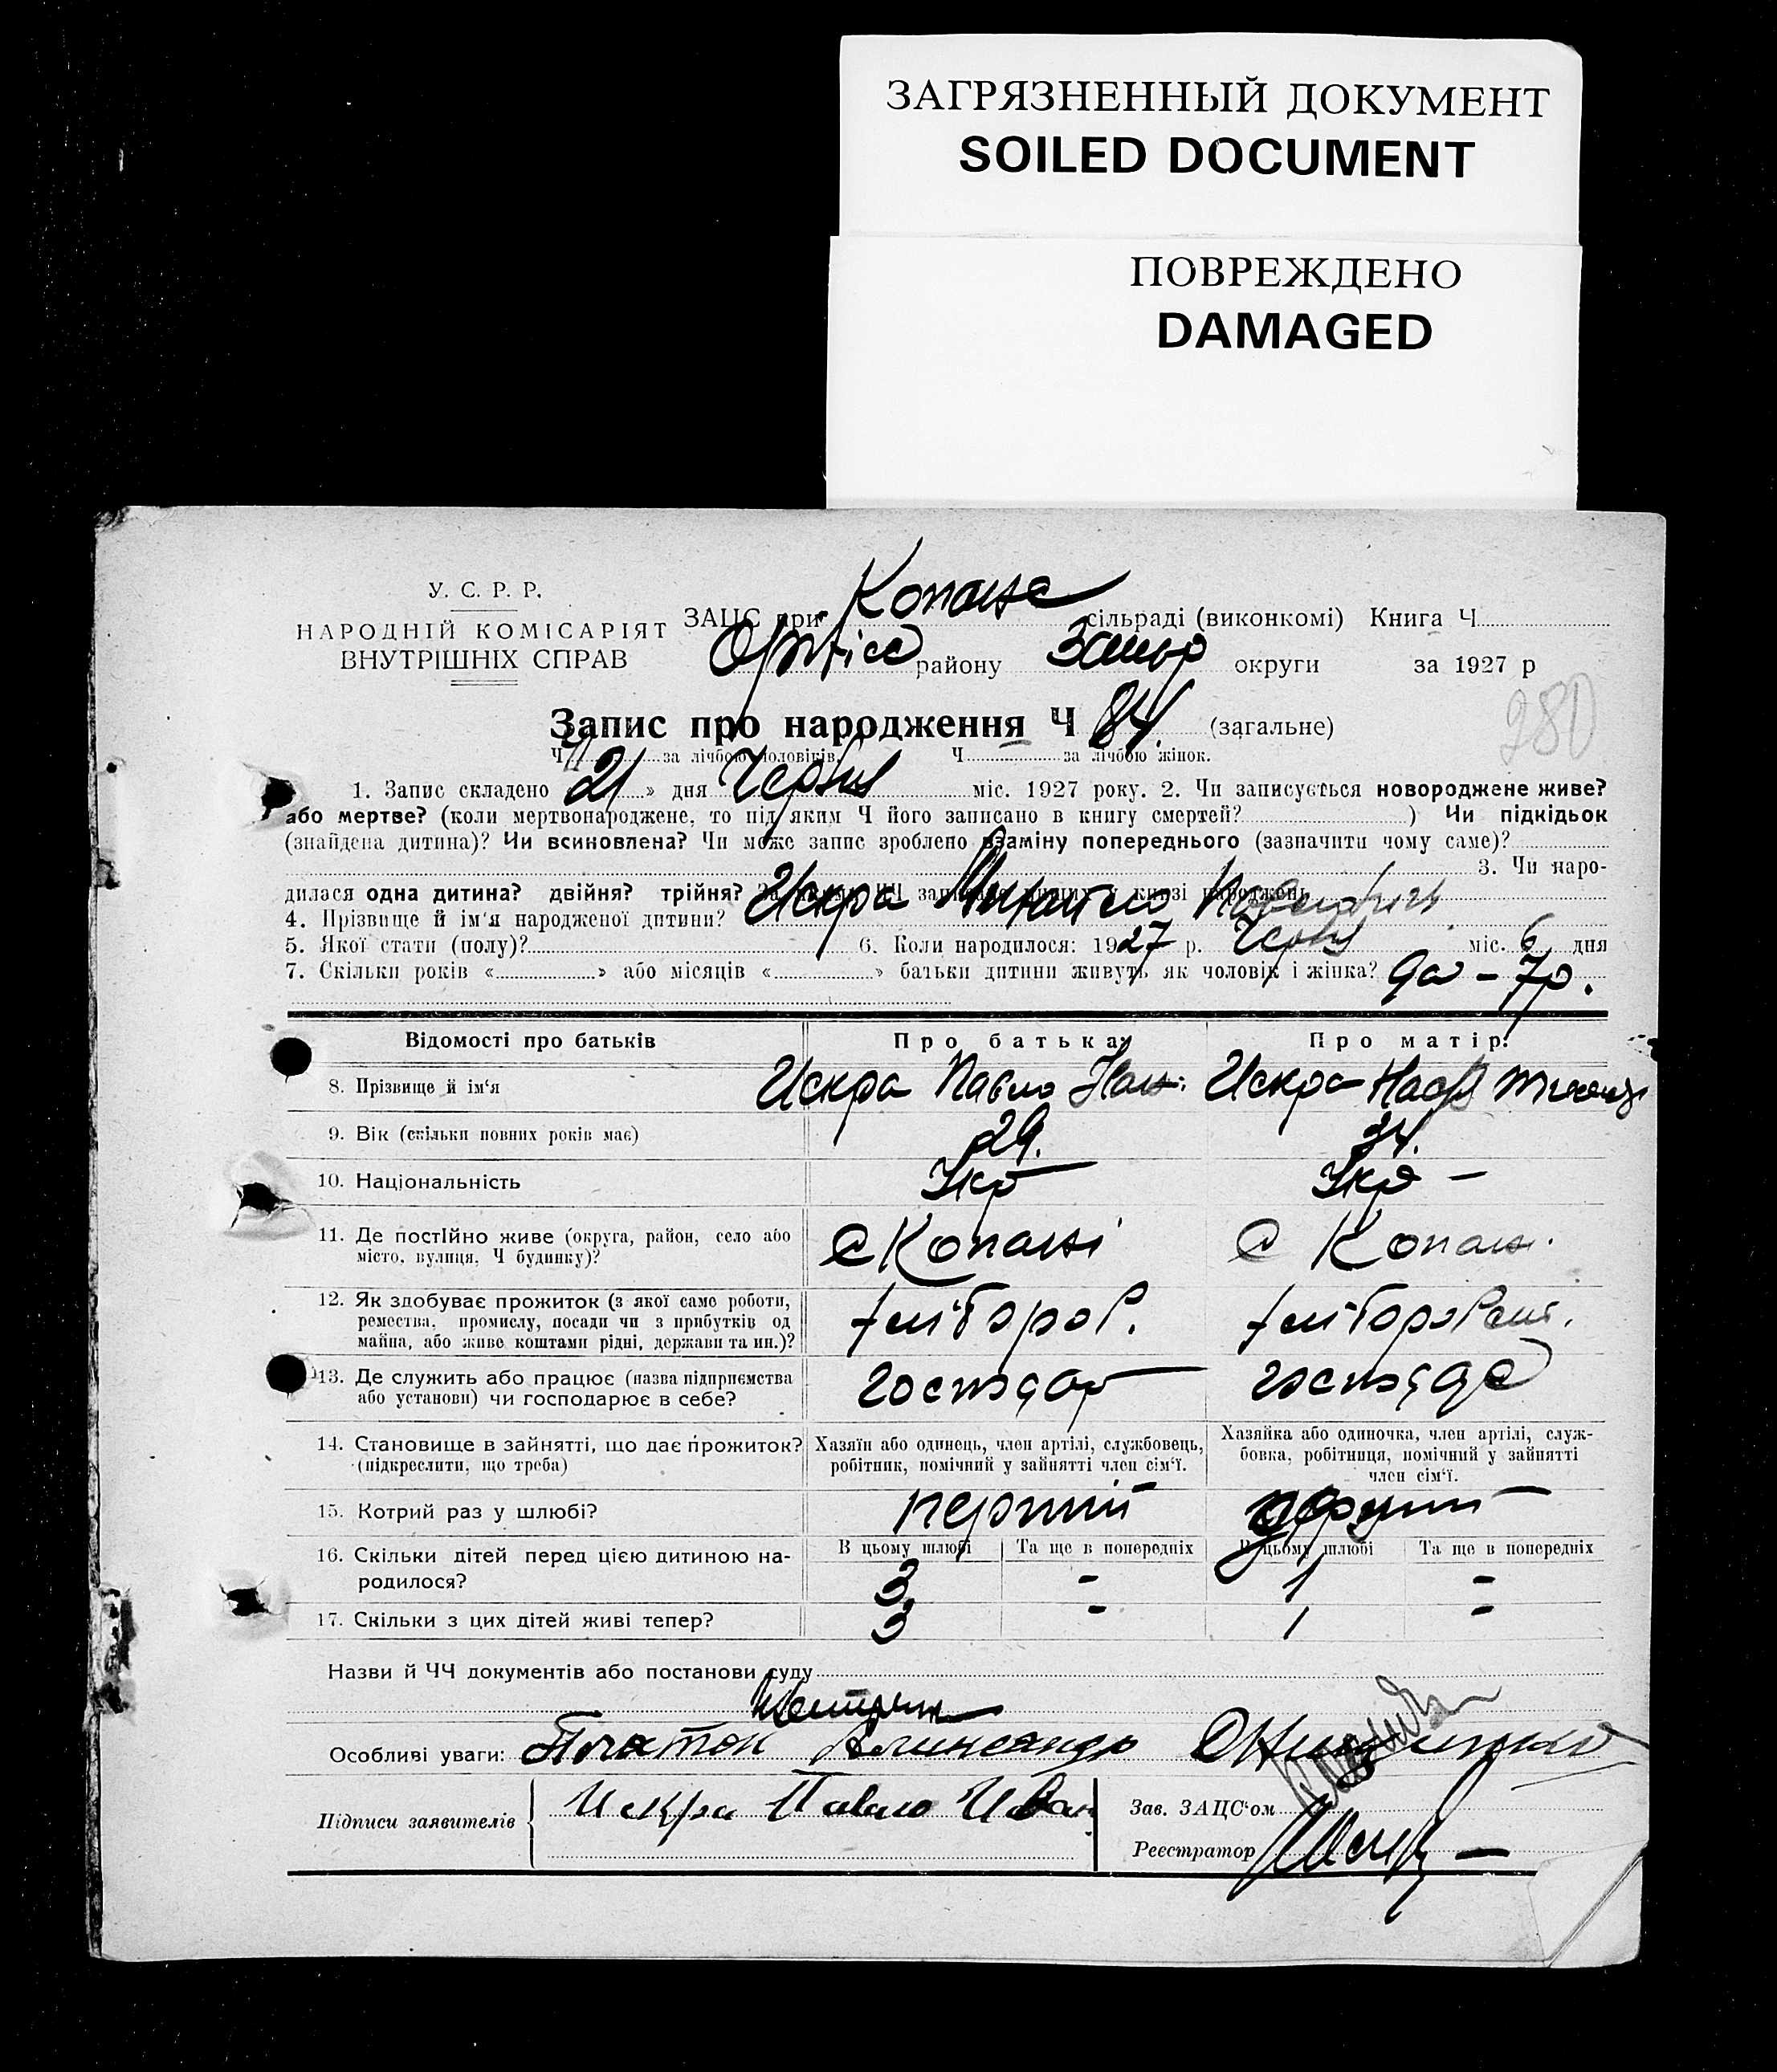 ЗАГРЯЗНЕННЫЙ ДОКУМЕНТ
SOILED DOCUMENT
ПОВРЕЖДЕНО
DAMAGED
У. С. Р. Р.
НАРОДНІЙ КОМІСАРІЯТ
ВНУТРІШНІХ СПРАВ
ЗАЦС при сільраді (виконкомі) Книга Ч
району округи за 1927 р
280
Запис про народження Ч 84. (загальне)
Ч за лічбою чоловіків. Ч за лічбою жінок.
1. Запис складено 21 » дня Червн міс. 1927 року. 2. Чи записується новороджене живе?
або мертве? (коли мертвонароджене, то під яким Ч його записано в книгу смертей? ) Чи підкідьок
(знайдена дитина)? Чи всиновлена? Чи може запис зроблено взаміну попереднього (зазначити чому саме)?
3. Чи наро-
дилася одна дитина? двійня? трійня?
4. Прізвище й ім'я народженої дитини? Искра Михайло Павлович
5. Якої стати (полу)? 6. Коли народилося: 1927 р. Червн міс. 6 дня
7. Скільки років « » або місяців « » батьки дитини живуть як чоловік і жінка? да – 7р.
Відомості про батьків Про батька: Про матір:
8. Прізвище й ім'я Искра Павло Искра
9. Вік (скільки повних років має) 29. 34.
10. Національність Укр Укр –
11. Де постійно живе (округа, район, село або
місто, вулиця, Ч будинку)? с Копані с Копан.
12. Як здобуває прожиток (з якої само роботи,
ремества, промислу, посади чи з прибутків од
майна, або живе коштами рідні, держави та ин.)? хлібороб.
13. Де служить або працює (назва підприємства
або установи) чи господарює в себе? господар господа
14. Становище в зайнятті, що дає прожиток?
(підкреслити, що треба)
Хазяїн або одинець, член артілі, службовець,
робітник, помічний у зайнятті член сім'ї.
Хазяйка або одиночка, член артілі, служ-
бовка, робітниця, помічний у зайнятті
член сім'ї.
15. Котрий раз у шлюбі? перший другий
В цьому шлюбі Та ще в попередніх В цьому шлюбі Та ще в попередніх
16. Скільки дітей перед цією дитиною на-
родилося? 3 - 1 -
17. Скільки з цих дітей живі тепер? 3 - 1 -
Назви й ЧЧ документів або постанови суду
Особливі уваги:
Підписи заявителів Искра Павло Иван
Зав. ЗАЦС'ом
Реєстратор